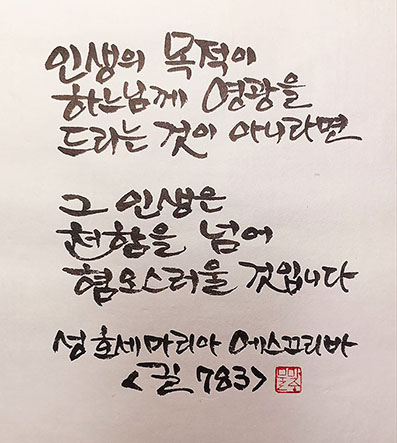 인생의 목적이
하느님께 영광을
드리는 것이 아니라면
그 인생은
천함을 넘어
혐오스러울 것입니다
성 호세마리아 에스끄리바
<길 783>